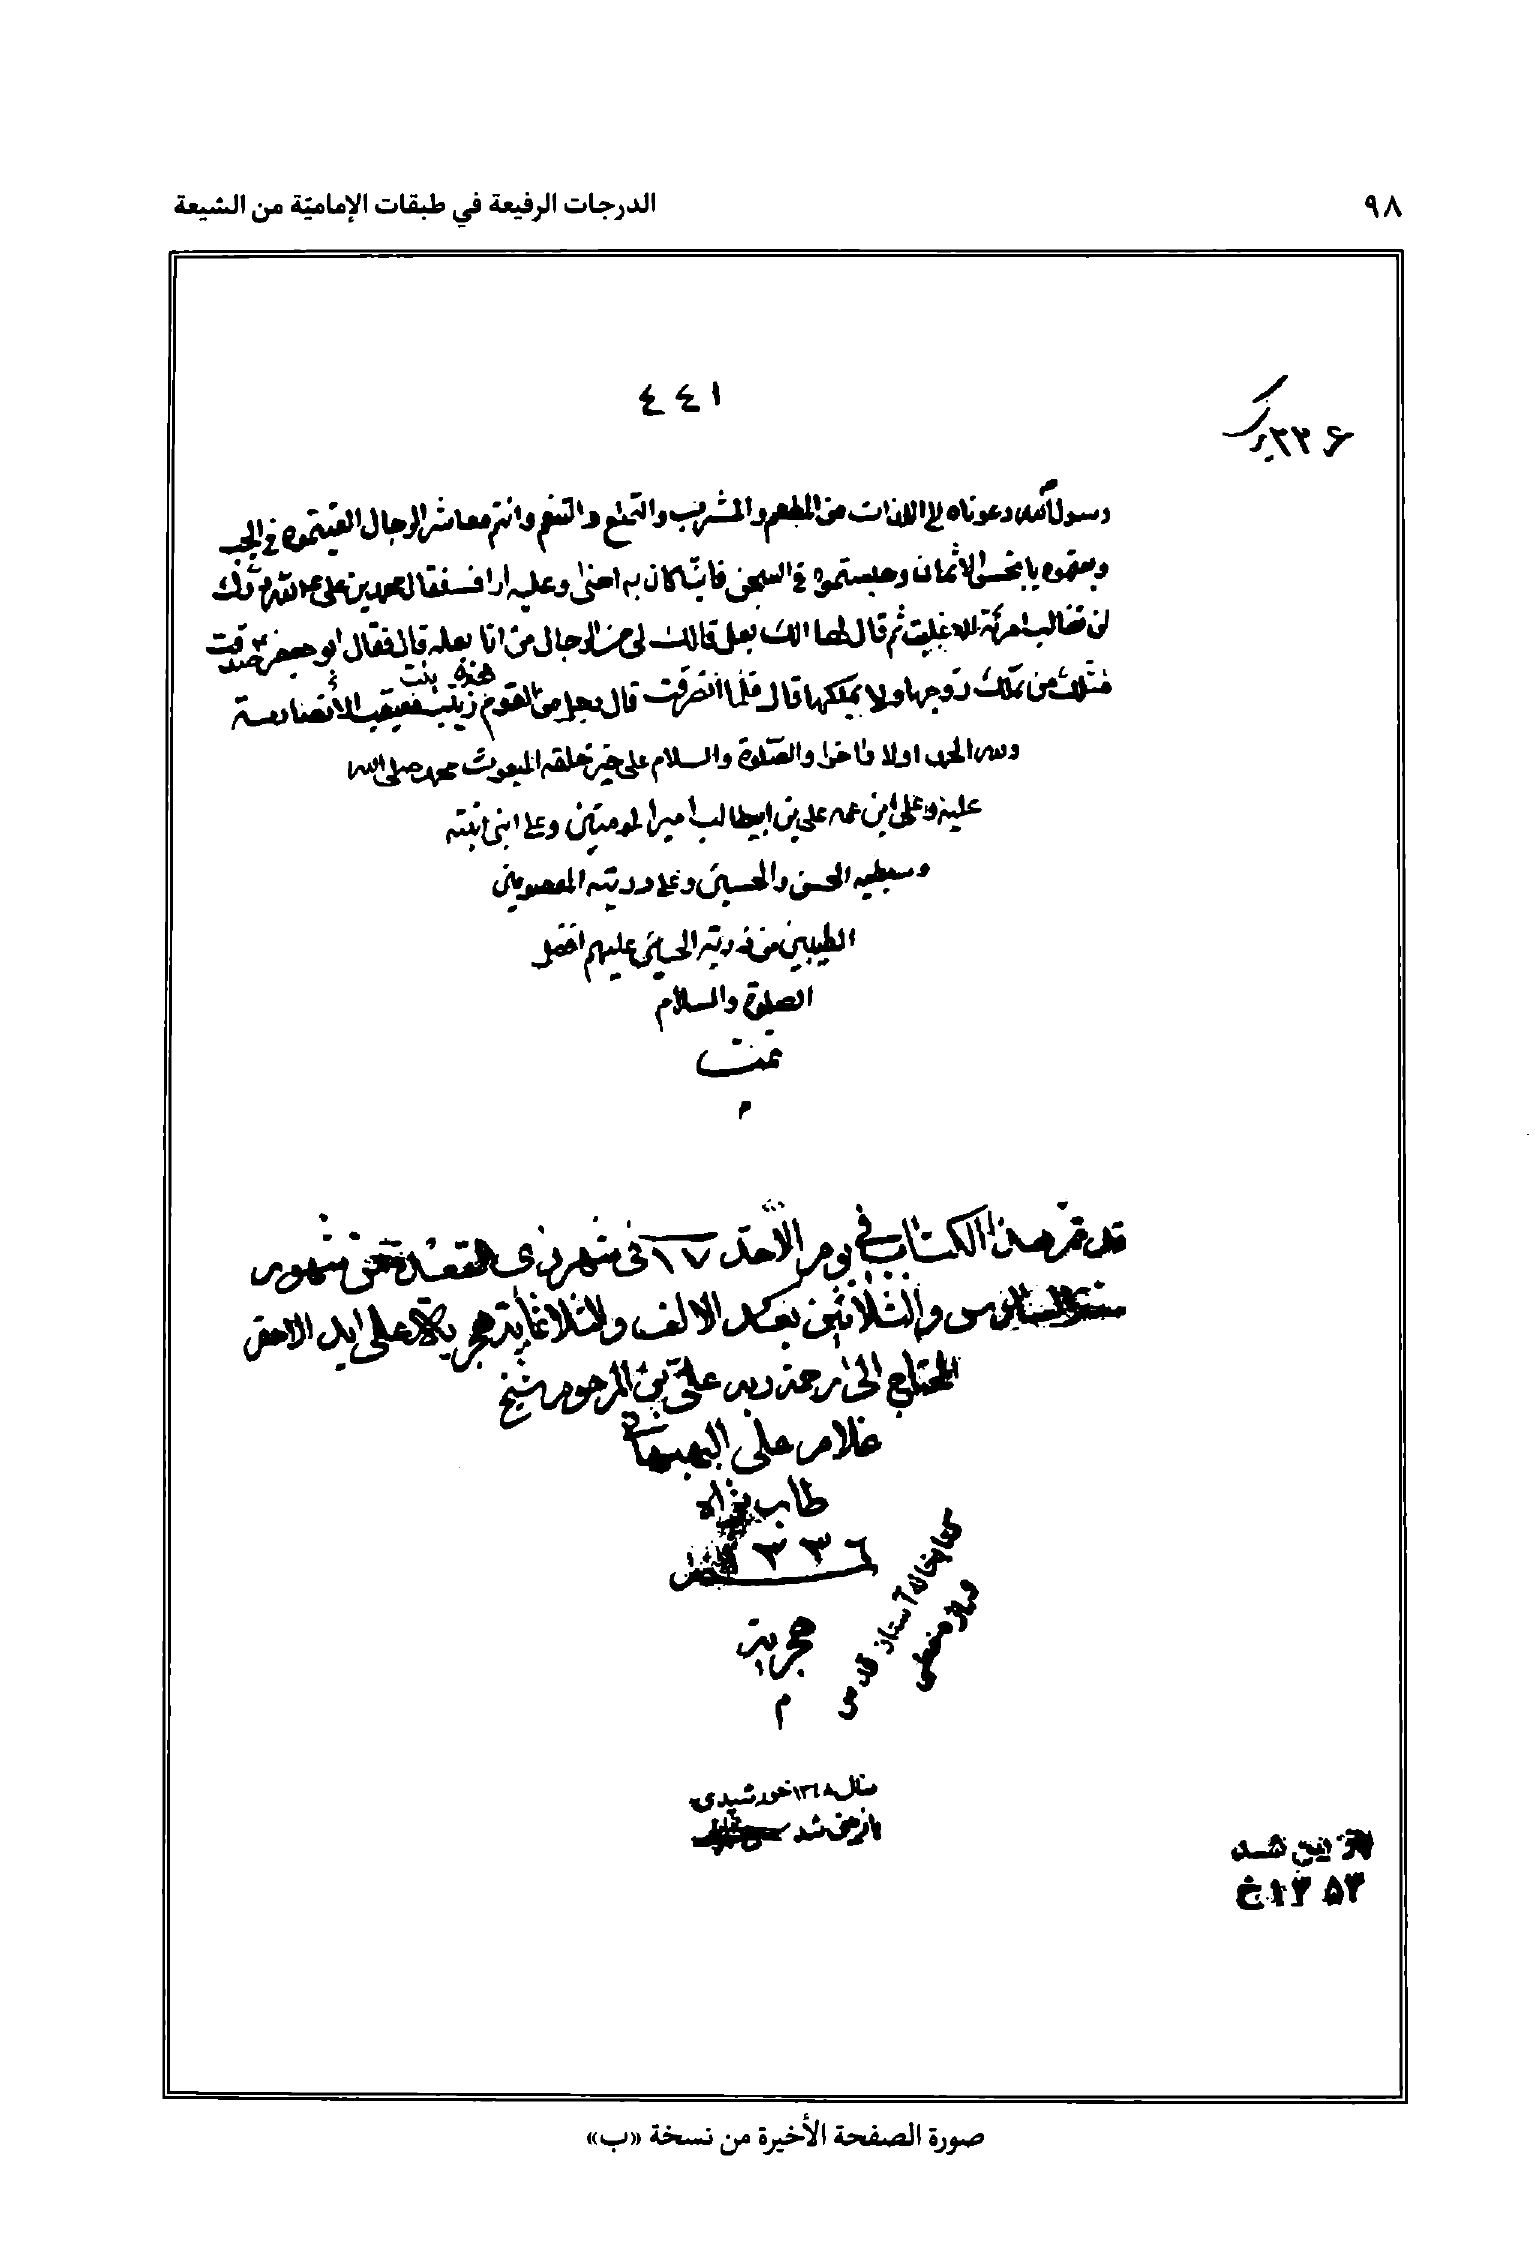 ٩٨
الدرجات الرفيعة في طبقات الإماميّة من الشيعة
٤٤١
٣٣۶
رسول الله دعوناه الى اللذات من المطعم والمشرب والتمتع والتنعم وانتم معاشر الرجال القيتموه في الجب
وبعتموه بابخس الاثمان وحبستموه في السجن فاينا كان به احنى وعليه اراف فقال محمد بن علي ع لله درك
لن تغالب امرئة الا غلبت ثم قال لها الك بعل قالت لي من الرجال من انا بعله قال فقال ابو جعفر صدقت
مثلك من تملك زوجها ولا يملكها قال فلما انصرفت قال رجل من القوم هذه زينب بنت معيقب الأنصارية
ولله الحمد اولا واخرا والصلوة والسلام على خير خلقه المبعوث محمد صلى الله
عليه وعلى ابن عمه علي بن ابيطالب امير المومنين وعلى ابنى ابنته
وسبطيه الحسن والحسين وعلى ذريته المعصومين
الطيبين من ذرية الحسين عليهم افضل
الصلوة والسلام
تمت
م
قد تم هذا الكتاب في يوم الأحد ١٧ في شهر ذى القعدة من شهور
السادس والثلاثين بعد الالف والثلاثمأية هجرية على يد الاحقر
المحتاج الى رحمة ربه على بن المرحوم شيخ
غلام على البهبهانى
طاب ثراه
٣٣٦
هجرية
م
كتابخانه آستان قدس
سال ١٣٤٨ خورشيدى
بازبينى شد
بازبين شد
١٣۵٣خ
صورة الصفحة الأخيرة من نسخة «ب»